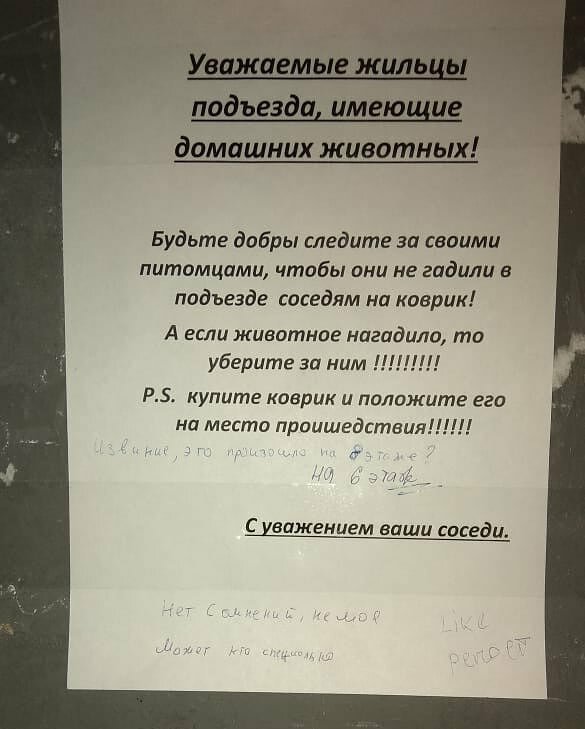 Уважаемые жильцы
подъезда, имеющие
домашних животных!
Будьте добры следите за своими
питомцами, чтобы они не гадили в
подъезде соседям на коврик!
А если животное нагадило, то
уберите за ним !!!!!!!!!
P.S. купите коврик и положите его
на место проишедствия!!!!!!
Извините, это произошло на 8 этаже?
на 6 этаж
С уважением ваши соседи.
Нет Сомнений, не моя
Like
Может кто специально
репост